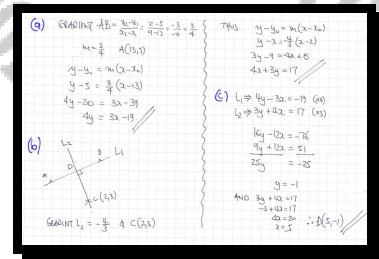 (a) GRADIENT AB = (y₂-y₁)/(x₂-x₁) = (2-5)/(9-13) = -3/-4 = 3/4
m = 3/4 A(13,5)
y-y₀ = m(x-x₀)
y-5 = 3/4(x-13)
4y-20 = 3x-39
4y = 3x-19
(b)
L₂
B L₁
D
A
C(2,3)
GRADIENT L₂ = -4/3 & C(2,3)
THUS y-y₀ = m(x-x₀)
y-3 = -4/3(x-2)
3y-9 = -4x+8
4x+3y = 17
(c) L₁ ⇒ 4y-3x = -19 (×4)
L₂ ⇒ 3y+4x = 17 (×3)
16y-12x = -76
9y+12x = 51
25y = -25
y = -1
AND 3y+4x = 17
-3+4x = 17
4x = 20
x = 5 ∴ D(5,-1)